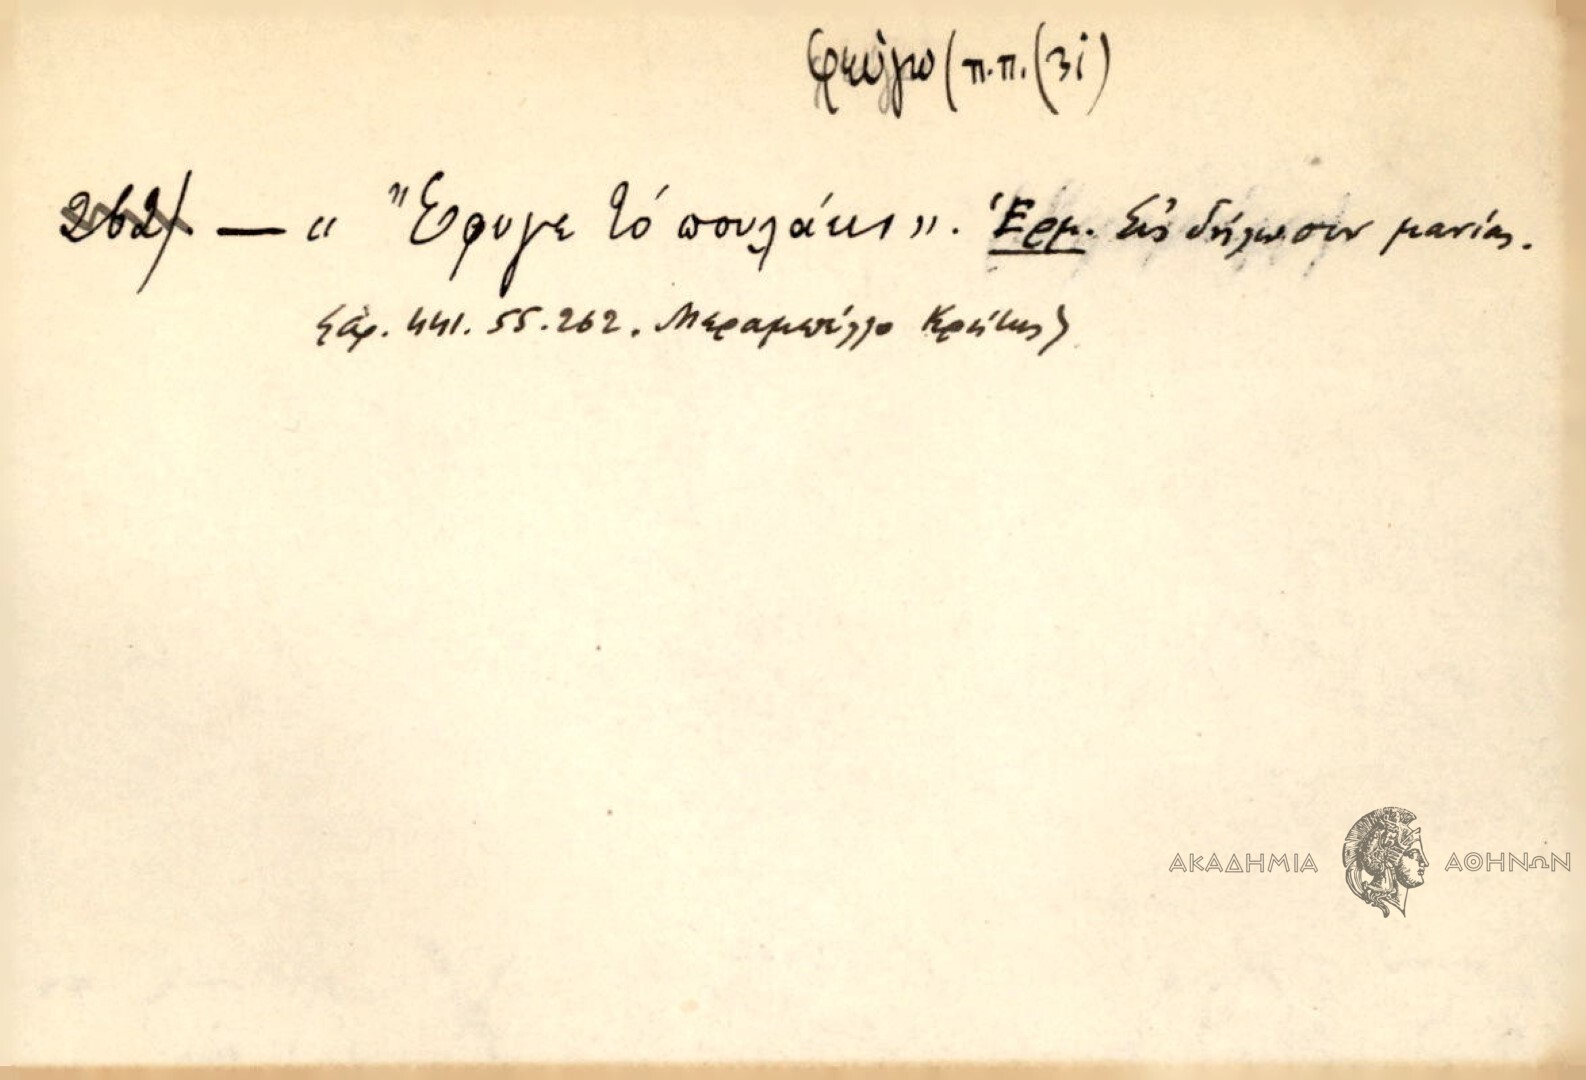 φεύγω (π.π. (3i)
262) — « Ἔφυγε τό πουλάκι ». Ἑρμ. Εἰς δήλωσιν μανίας.
{ἀρ. 441. 55.262. Μεραμπέλλο Κρήτης}
ΑΚΑΔΗΜΙΑ ΑΘΗΝΩΝ